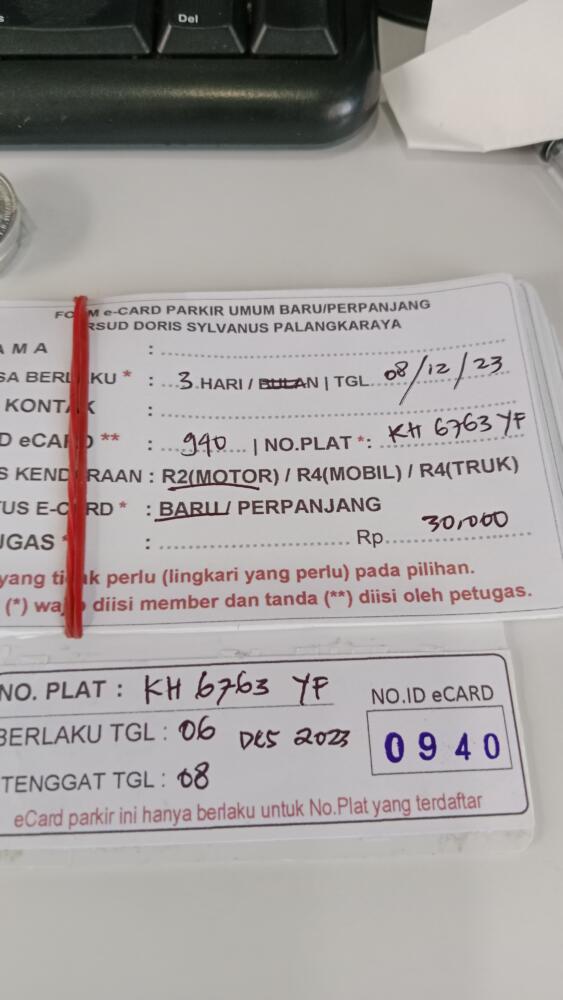 s
Del
FORM e-CARD PARKIR UMUM BARU/PERPANJANG
RSUD DORIS SYLVANUS PALANGKARAYA
AMA :
SA BERLAKU * : 3 HARI / BULAN | TGL. 08/12/23
KONTAK :
D eCARD ** : 940 | NO.PLAT *: KH 6763 YF
S KENDERAAN : R2(MOTOR) / R4(MOBIL) / R4(TRUK)
TUS E-CARD * : BARU / PERPANJANG
UGAS * : Rp. 30,000
yang tidak perlu (lingkari yang perlu) pada pilihan.
(*) wajib diisi member dan tanda (**) diisi oleh petugas.
NO. PLAT : KH 6763 YF
NO.ID eCARD
BERLAKU TGL : 06 DES 2023
0940
TENGGAT TGL : 08
eCard parkir ini hanya berlaku untuk No.Plat yang terdaftar